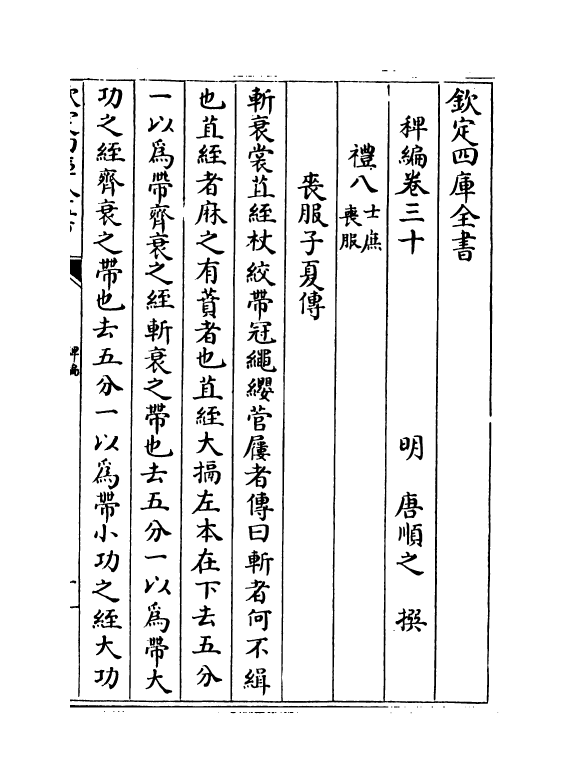 欽定四庫全書
稗編卷三十 明 唐順之 撰
禮八 士庶喪服
喪服子夏傳
斬衰裳苴絰杖絞帶冠繩纓菅屨者傳曰斬者何不緝
也苴絰者麻之有蕡者也苴絰大搹左本在下去五分
一以爲帶齊衰之絰斬衰之帶也去五分一以爲帶大
功之絰齊衰之帶也去五分一以爲帶小功之絰大功
欽定四庫全書
稗編